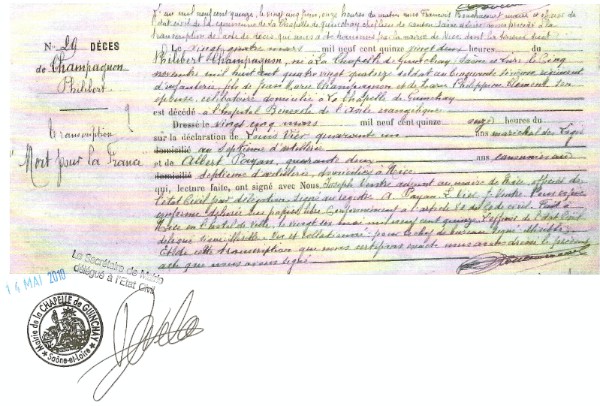 L'an mil neuf cent quinze, le vingt cinq juin, onze heures du matin nous François Bouchacourt maire et officier de
l'état civil de la commune de La Chapelle de Guinchay chef lieu de canton Saône et Loire avons procédé à la
transcription de l'acte de décès qui nous a été transmis par la mairie de Nice dont la teneur suit
N° 29 DÉCES
de Champagnon
Philibert
transcription
Mort pour la France
Le vingt quatre mars mil neuf cent quinze vingt deux heures du
Philibert Champagnon, né à La Chapelle de Guinchay Saône et Loire le cinq
novembre mil huit cent quatre vingt quatorze soldat au cinquante sixième régiment
d'infanterie, fils de Champagnon et de Philippine Clément, son
épouse, célibataire domicilié à La Chapelle de Guinchay
est décédé à l'hôpital Bénévole de l'Asile évangélique
Dressé le vingt cinq mars mil neuf cent quinze onze heures du
sur la déclaration de Louis Vier quarante un ans maréchal des logis
domicilié au septième d'artillerie
et de Albert Payan, quarante deux ans
domicilié septième d'artillerie, domiciliés à Nice
qui, lecture faite, ont signé avec Nous Joseph adjoint au maire de Nice officier de
l'état civil par délégation, signé au registre A Payan L Vier J Pour copie
conforme sur papier libre conformément à l'article 80 du code civil. Fait à
Nice en l'hôtel de Ville, le vingt six mai mil neuf cent quinze. L'officier de l'état civil
délégué signé
de cette transcription que nous certifions avoir le présent
acte que nous avons signé
14 MAI 2010
La Secrétaire de Mairie
délégué à l'Etat Civil
Mairie de la CHAPELLE de GUINCHAY
Saône-et-Loire